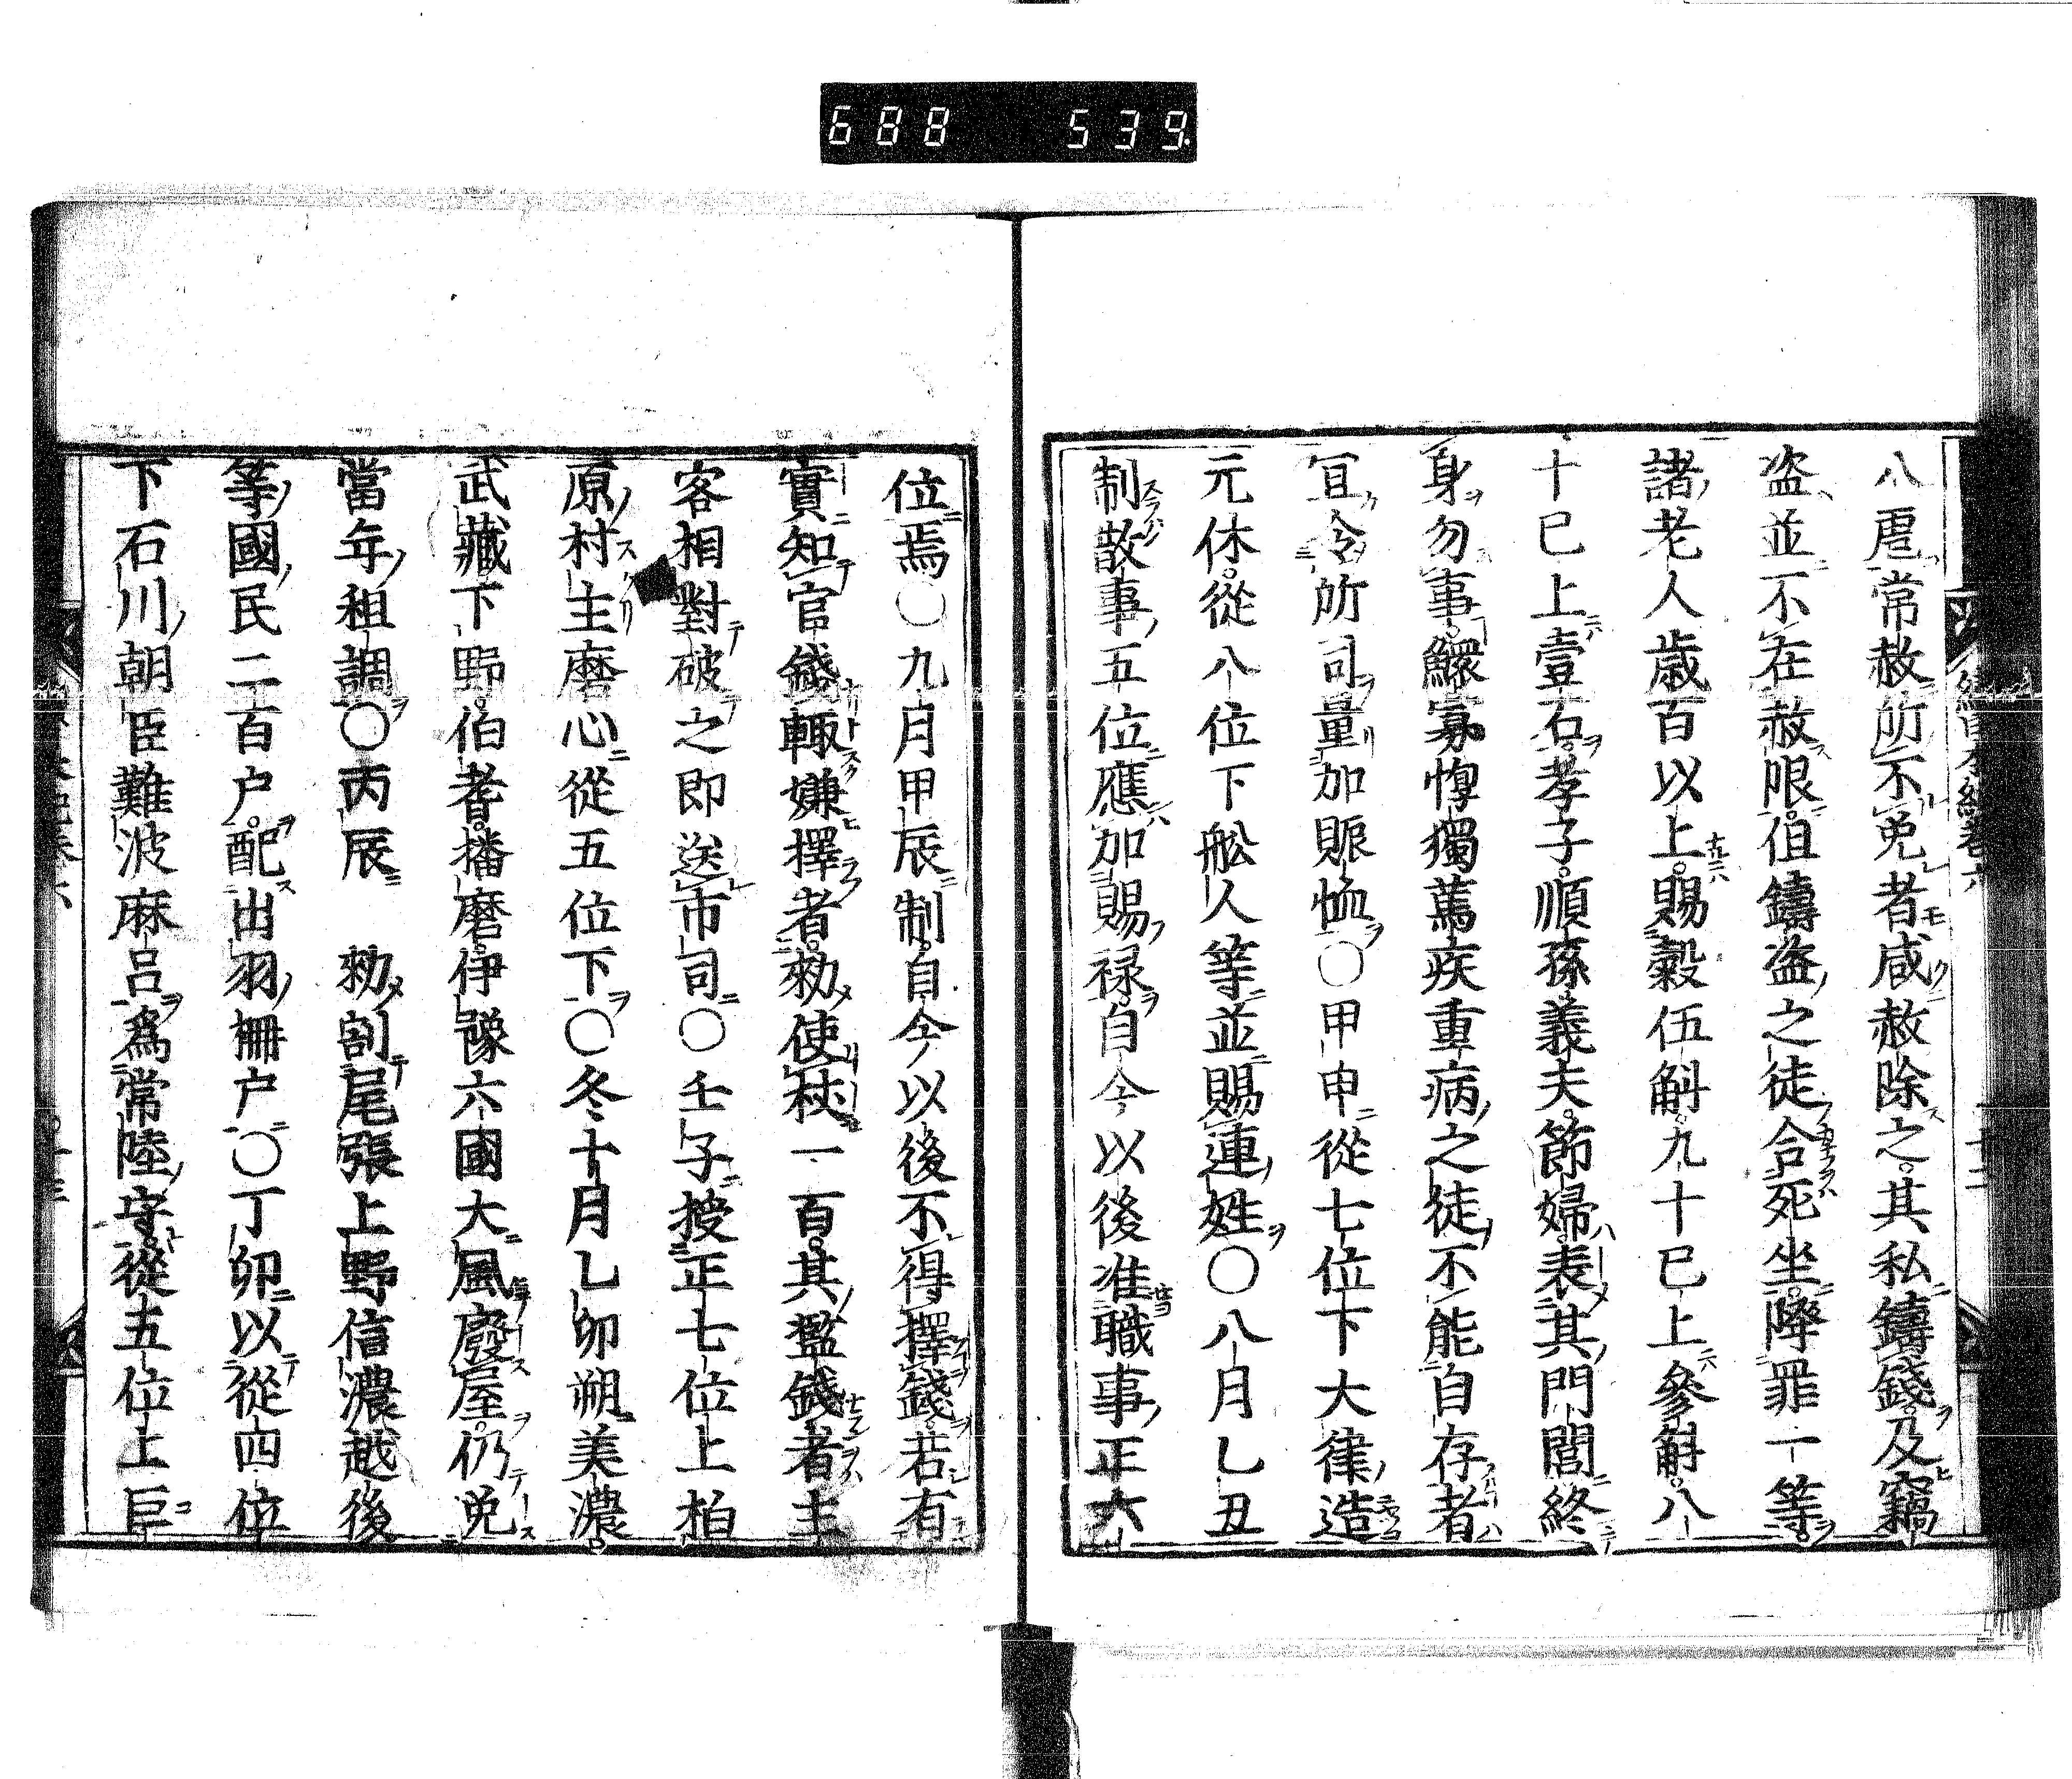 688 539
八虐常赦所不免者咸赦除之其私鑄錢及竊
盗並不在赦限但鑄盗之徒合死坐降罪一等
諸老人歳百以上賜穀伍斛九十已上參斛八
十已上壹石孝子順孫義夫節婦表其門閭終
身勿事鰥寡惸獨篤疾重病之徒不能自存者
冝令所司量加賑恤〇甲申從七位下大律造
元休從八位下舩人等並賜連姓〇八月乙丑
制散事五位應加賜禄自今以後准職事正六
位焉〇九月甲辰制自今以後不得擇錢若有
實知官錢輙嫌擇者勑使杖一百其濫錢者主
客相對破之即送市司〇壬子授正七位上柏
原村主磨心從五位下〇冬十月乙卯朔美濃
武藏下野伯耆播磨伊豫六國大風廢屋仍免
當年租調〇丙辰 勑割尾張上野信濃越後
等國民二百户配出羽柵户〇丁卯以從四位
下石川朝臣難波麻呂爲常陸守從五位上巨